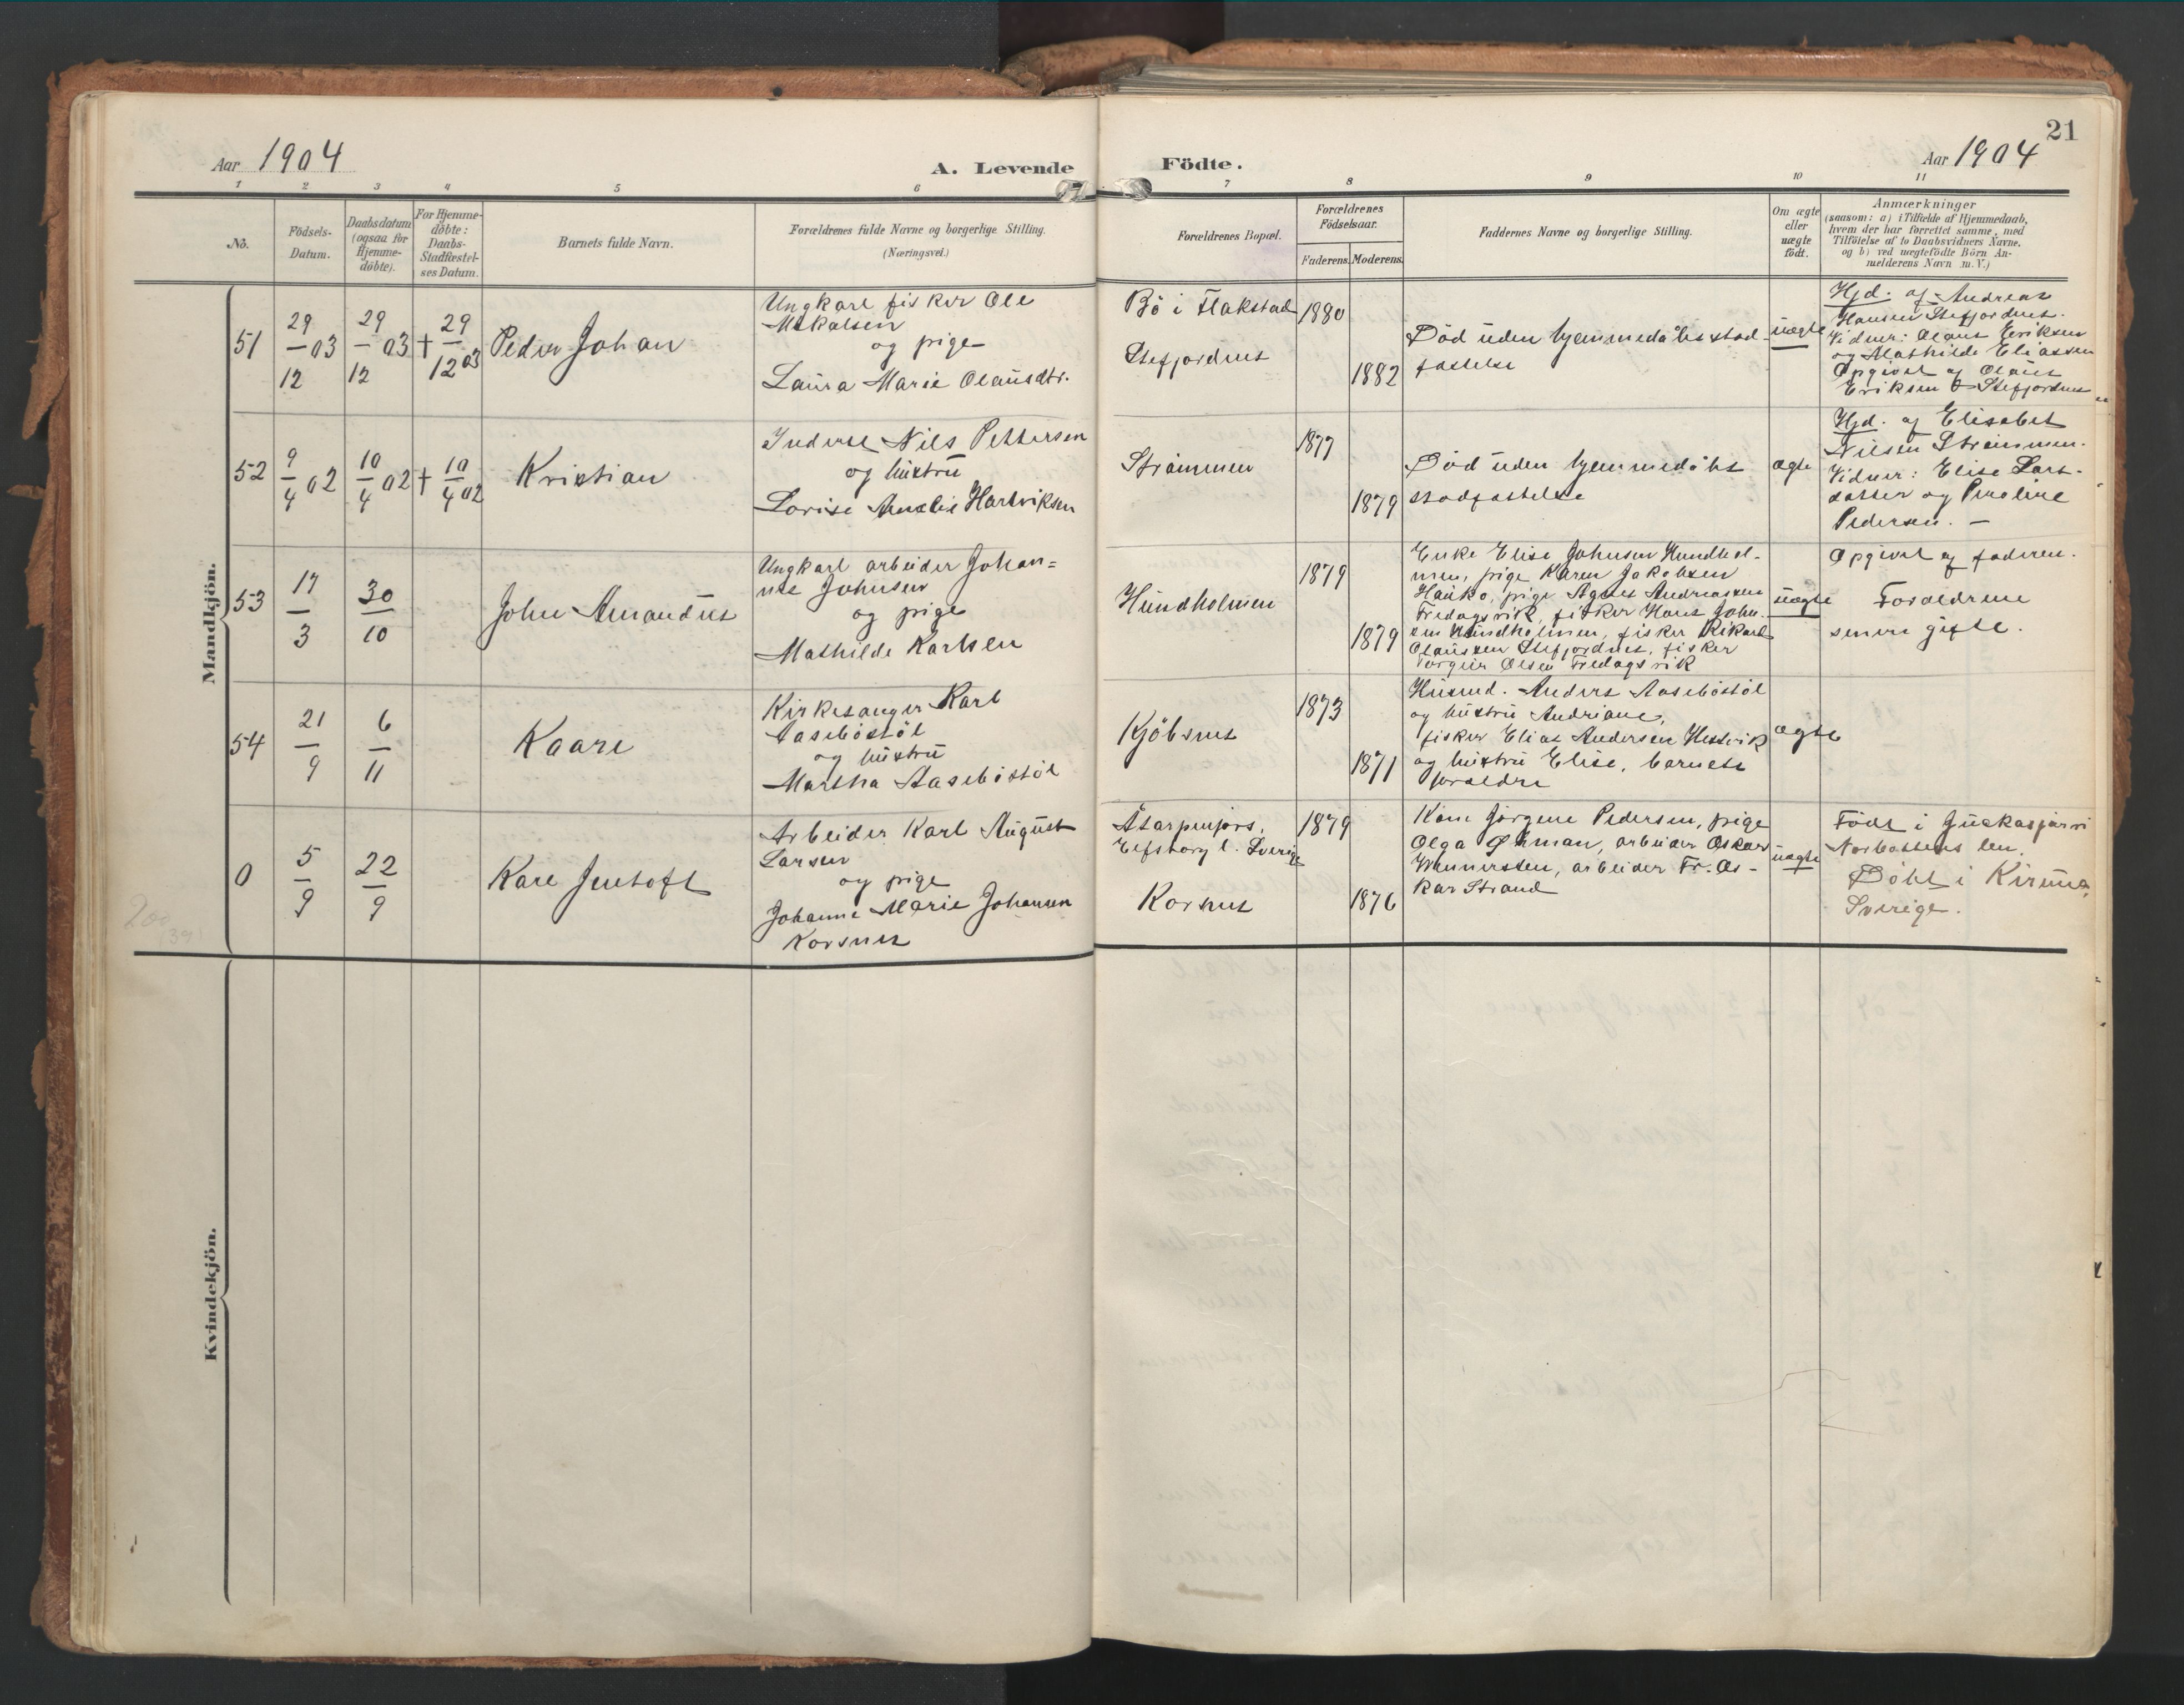 21
Aar 1904
A. Levende
Födte.
Aar 1904
1 2 3 4 5 6 7 8 9 10 11
No.
Födsels-
Datum.
Daabsdatum
(ogsaa for
Hjemme-
döbte).
For Hjemme-
döbte:
Daabs-
Stadfæstel-
ses Datum.
Barnets fulde Navn.
Forældrenes fulde Navne og borgerlige Stilling.
(Næringsvei.)
Forældrenes Bopæl.
Forældrenes
Födselsaar.
Faderens. Moderens.
Faddernes Navne og borgerlige Stilling.
Om ægte
eller
uægte
födt.
Anmærkninger
(saasom: a) i Tilfælde af Hjemmedaab,
hvem der har forrettet samme, med
Tilföielse af to Daabsvidners Navne.
og b) ved uægtefödte Börn An-
melderens Navn m. V.)
Mandkjön.
51
29/12 03
29/12 03
+ 29/12 03
Peder Johan
Ungkarl fisker Ole
Mikalsen
og pige
Laura Marie Olausdtr.
Bö i Flakstad
Stefjordnes
1880
1882
Död uden hjemmedåbsstad-
fæstelse
uægte
Hjd. af Andreas
Hansen Stefjordnes.
Vidner: Olaus Eriksen
og Mathilde Eliassen
Opgivet af Olaus
Eriksen Stefjordnes
52
9/4 02
10/4 02
+ 10/4 02
Kristian
Inderst Nils Pettersen
og hustru
Lovise Amalie Hartviksen
Strömmen
1877
1879
Död uden hjemmedåbs
stadfæstelse
ægte
Hjd. af Elisabet
Nilsen Strömmen.
Vidner: Elise Lars-
datter og Peroline
Pedersen. —
53
17/3
30/10
John Amandus
Ungkarl arbeider Johan=
nes Johnsen
og pige
Mathilde Karlsen
Hundholmen
1879
1879
Enke Elise Johnsen Hundhol-
men, pige Karen Jakobsen
Haukö, pige Agnes Andreassen
Fredagsvik, fisker Hans John-
sen Hundholmen, fisker Rikard
Olaussen Stefjordnes, fisker
Torgeir Olsen Fredagsvik
uægte
Opgivet af faderen.
Foraldrene
senere gifte.
54
21/9
6/11
Kaare
Kirkesanger Karl
Aaseböstöl
og hustru
Martha Aaseböstöl
Kjöbsnes
1873
1871
Husmd. Anders Aaseböstöl
og hustru Andriane,
fisker Elias Andersen Hestvik
og hustru Elise, barnets
foraldre
ægte
0
5/9
22/9
Kare Jentoft
Arbeider Karl August
Larsen
og pige
Johanne Marie Johansen
Korsnes
Elfsborg l. Sverige
Korsnes
1879
1876
Kone Jörgine Pedersen, pige
Olga Öhman, arbeider Oskar
Wennersten, arbeider Fr. Os-
kar Strand
uægte
Födt i Juckasjärvi
Norbottens len.
Döbt i Kiruna,
Sverige.
200
Kvindekjön.